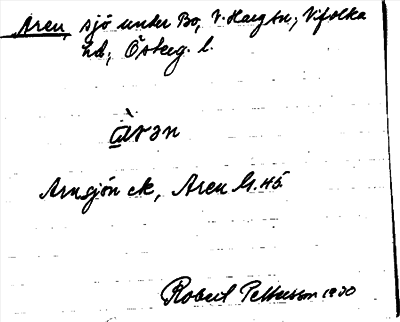 Aren, sjö under Bo, V. Harg sn, Vifolka
hd, Österg. l.
àrən
Arnsjön ek, Aren G. 45
Robert Pettersson 1930